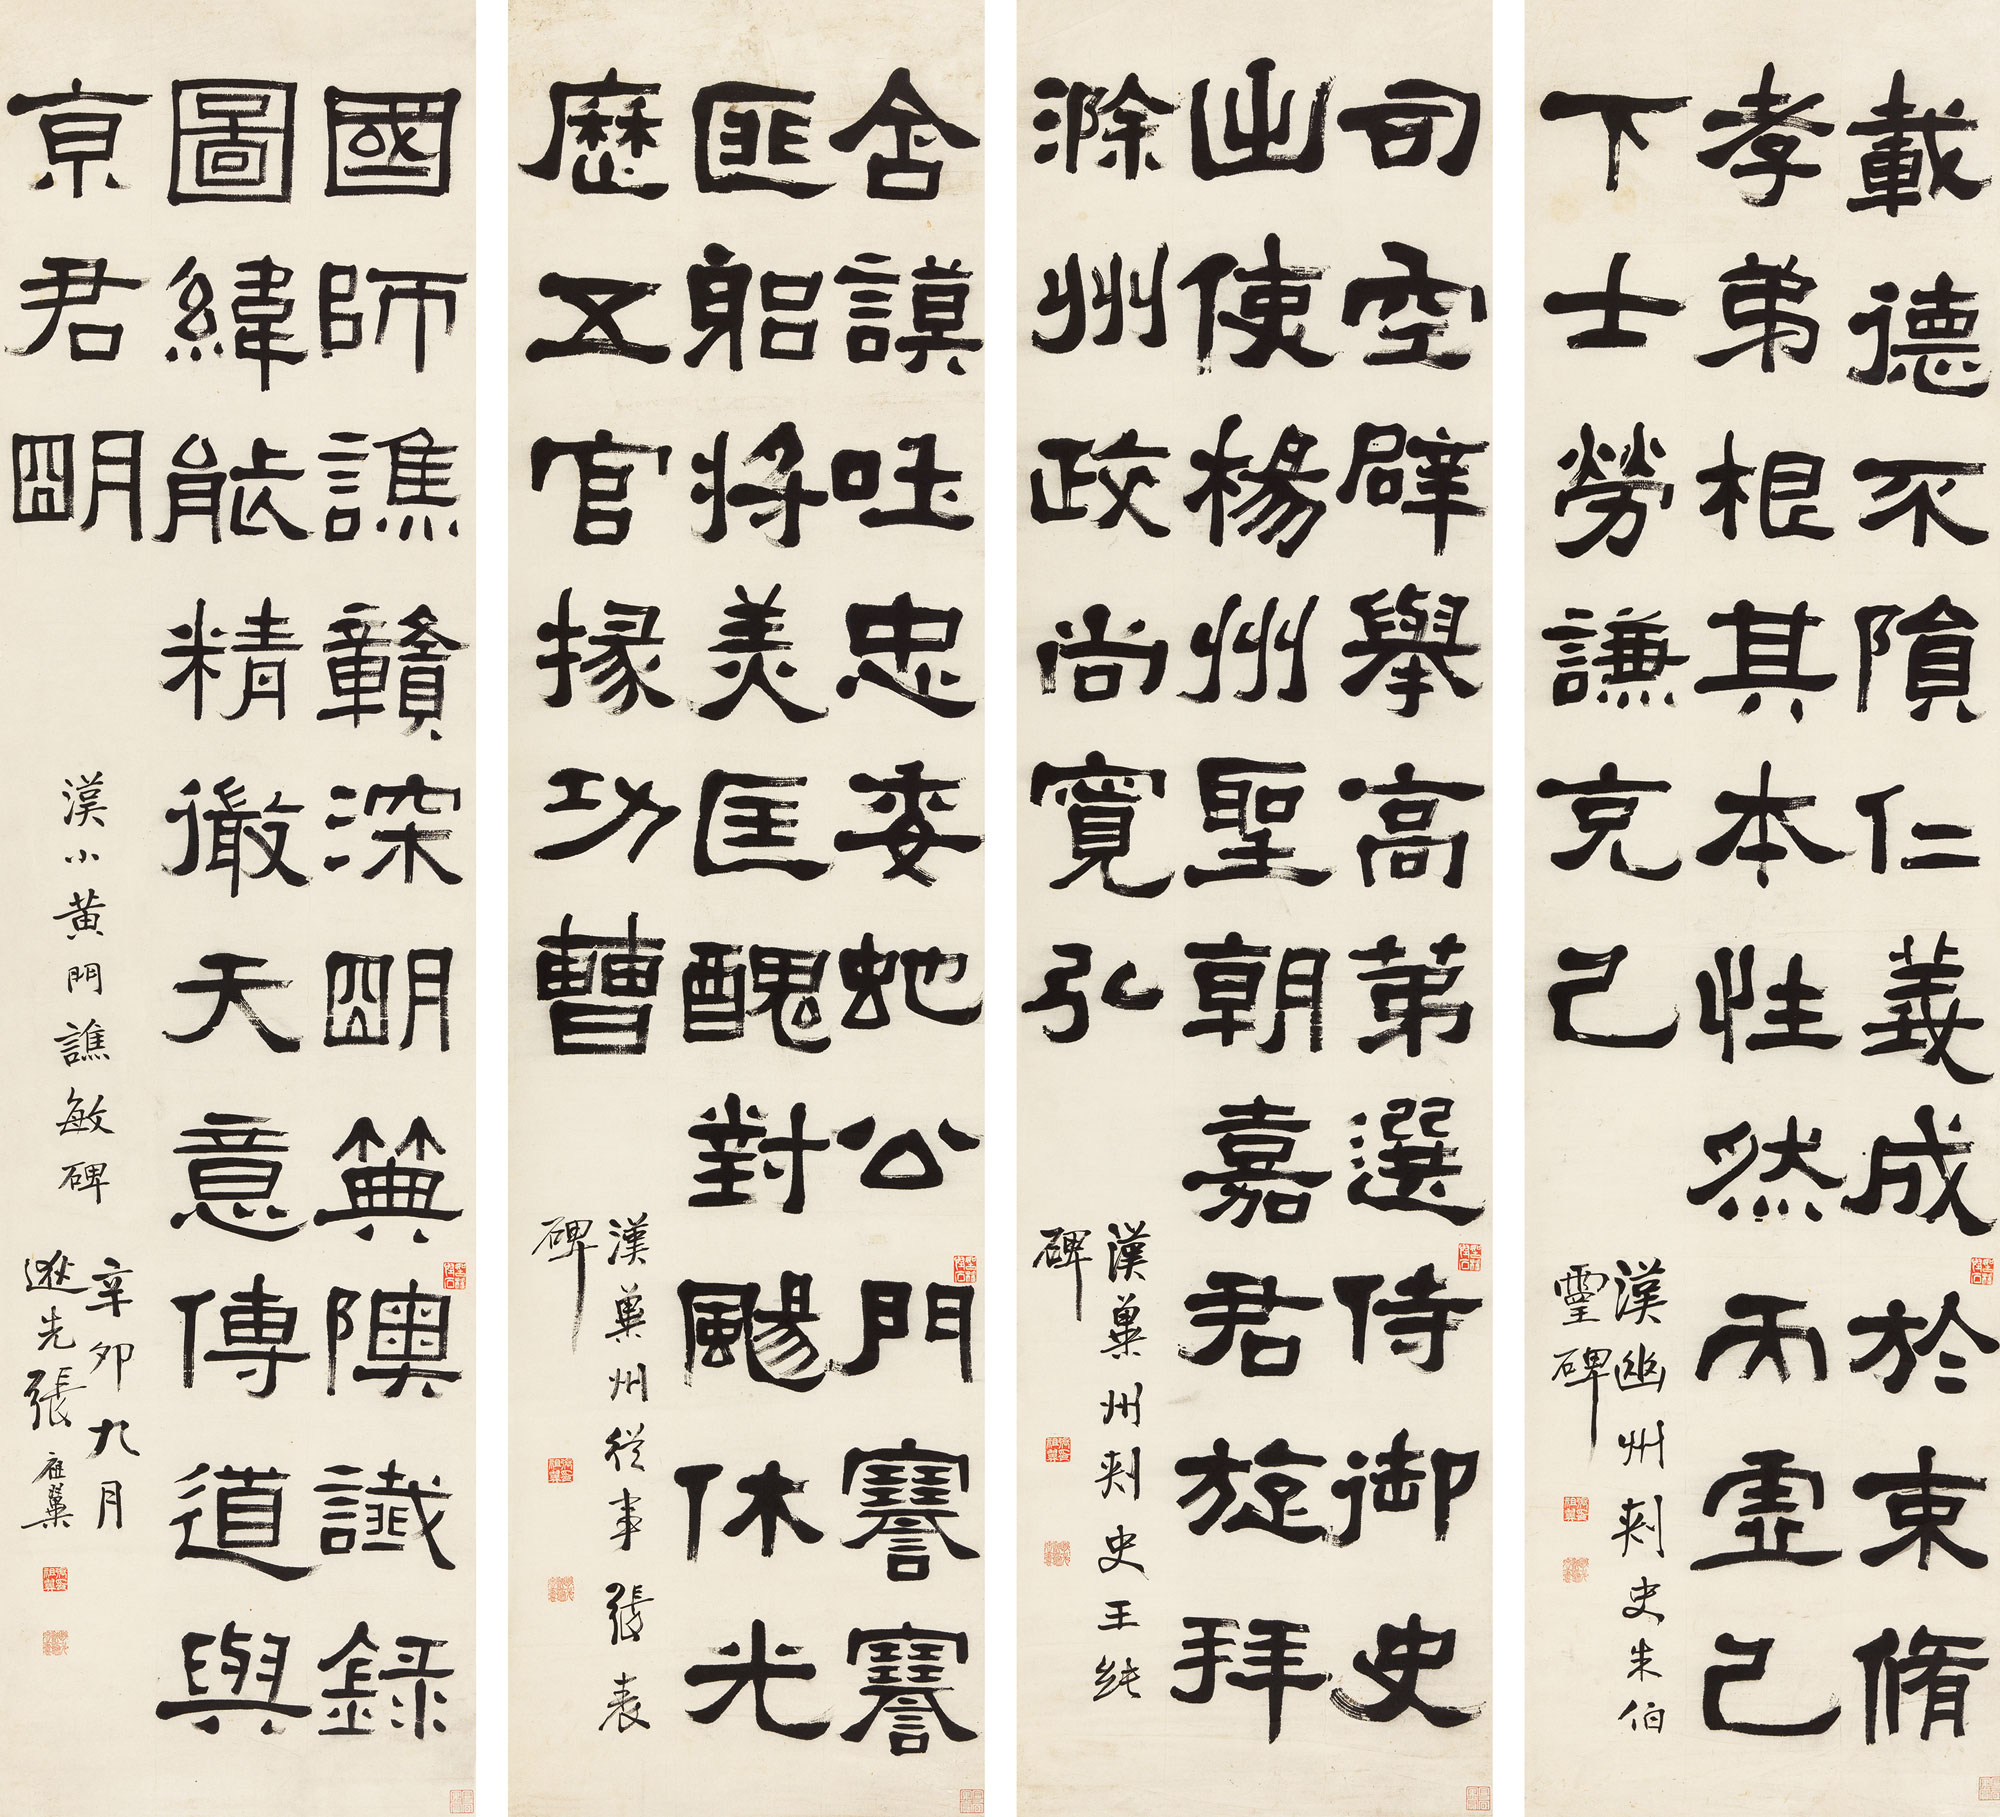 載德不隕仁義成於束脩
孝弟根其本性然而虛己
下士勞謙克己
漢幽州刺史朱伯
靈碑
司空辟舉高第選侍御史
出使楊州聖朝嘉君旋拜
滁州政尚寬弘
漢冀州刺史王純
碑
含謨吐忠委虵公門謇謇
匪躳將美匡醜對颺休光
歷五官掾功曹
漢冀州從事張表
碑
國師譙贛深明典隩讖錄
圖緯能精微天意傳道與
京君明
漢小黃門譙敏碑
辛卯九月
逖先張祖翼